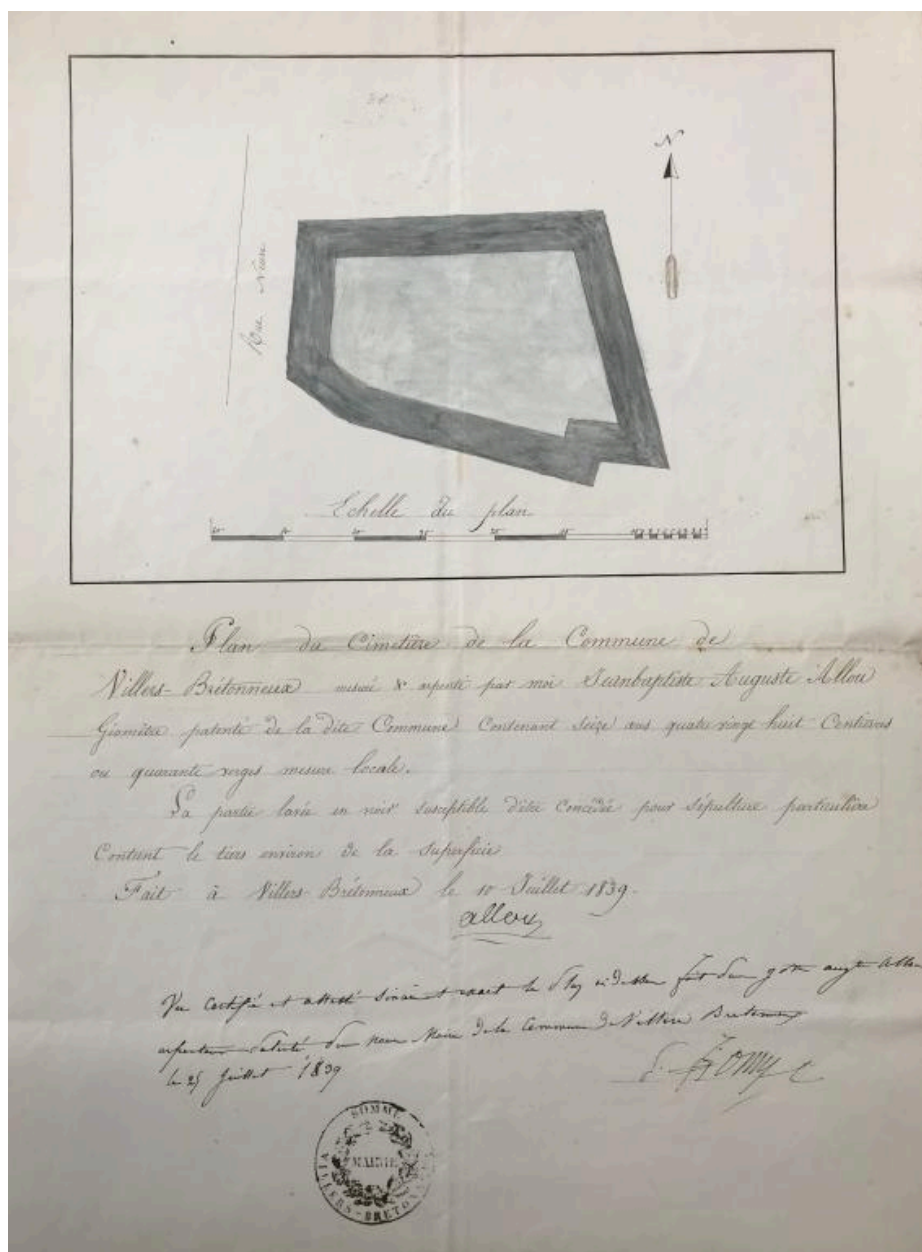 N
Rue
Echelle du plan
Plan du Cimetière de la Commune de
Villers-Brétonneux mesuré & arpenté par moi Jeanbaptiste Auguste Allou
Géomètre patenté de la dite Commune Contenant Seize ars quatre vingt huit Centiares
ou quarante verges mesure locale.
La partie lavée en noir susceptible d'être concédée pour sépulture particulière
Contient le tiers environ de la superficie
Fait à Villers-Brétonneux le 10 Juillet 1839.
allou
Vu certifié et attesté sincère et exact le
Maire de la Commune de Villers Bretonneux
le 25 Juillet 1839
SOMME
MAIRIE
VILLERS-BRETONNEUX